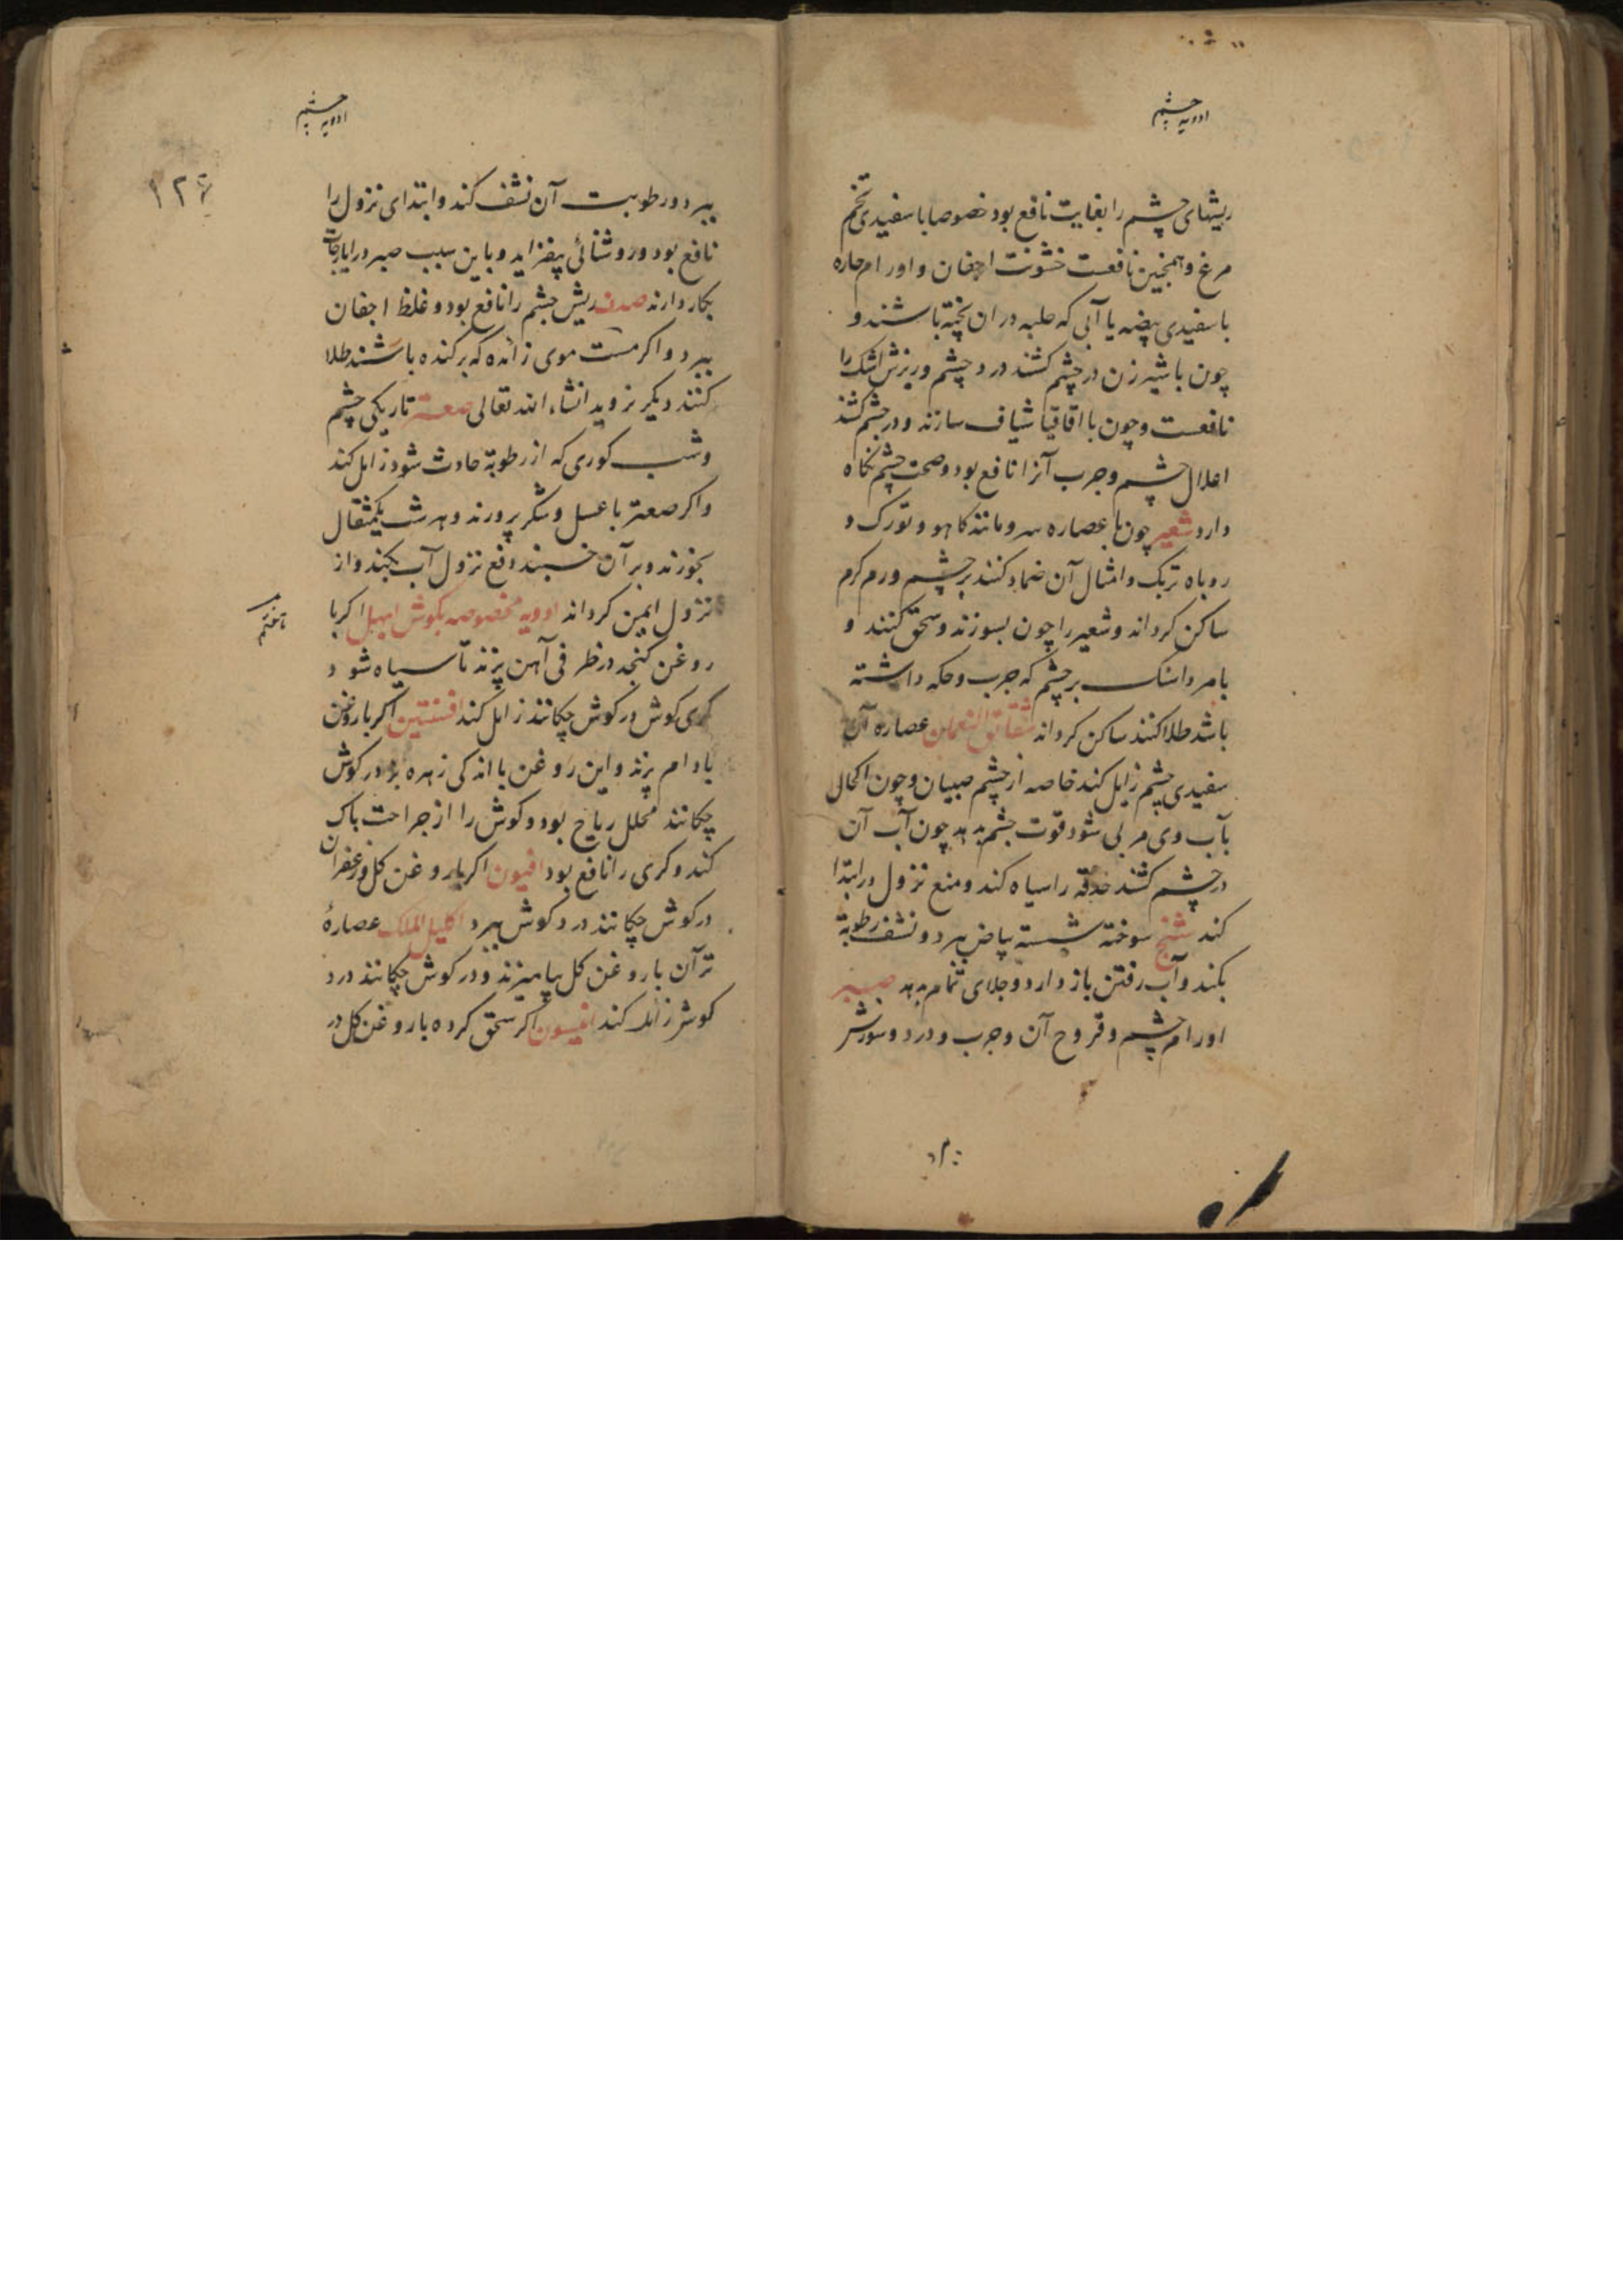 ادویه چشم
ریشهای چشم را بغایت نافع بود خصوصا با سفیدی تخم
مرغ و همچنین نافعست خشونت اجفان و اورام حاره
با سفیدی بیضه یا آبی که حلبه در ان پخته باشند و
چون با شیر زن در چشم کشند درد چشم و ریزش اشک را
نافعست و چون با اقاقیا شیاف سازند و در چشم کشند
اعلال چشم و جرب آنرا نافع بود و صحت چشم نکاه
دارد شعیر چون با عصاره سرو مانند کاهو و تورک و
روباه تربک و امثال آن ضماد کنند بر چشم ورم کرم
ساکن کرداند و شعیر را چون بسوزند و سحق کنند و
با مرداسنک بر چشم که جرب و حکه داشته
باشد طلا کنند ساکن کرداند شقائق النعمان عصاره آن
سفیدی چشم زایل کند خاصه از چشم صبیان و چون اکحالی
بآب وی مربی شود قوت چشم بدهد چون آب آن
در چشم کشند حدقه را سیاه کند و منع نزول در ابتدا
کند شنج سوخته شسته بیاض ببرد و نشف رطوبة
بکند و آب رفتن باز دارد و جلای تمام بدهد صبر
اورام چشم و قروح آن و جرب و درد و سوزش
ادویه چشم
۱۲۶
ببرد و رطوبت آن نشف کند و ابتدای نزول را
نافع بود و روشنائی بیفزاید و باین سبب صبر در ایارجات
بکار دارند صدف ریش چشم را نافع بود و غلظ اجفان
ببرد و اکر مست موی زائده که برکنده باشند طلا
کنند دیکر نروید انشاء الله تعالی صعتر تاریکی چشم
و شب کوری که از رطوبة حادث شود زایل کند
و اکر صعتر با عسل و شکر پرورند و هر شب یکمثقال
بخورند و بر آن خسبند دفع نزول آب بکند و از
نزول ایمن کرداند ادویه مخصوصه بکوش ابهل اکر با
روغن کنجد در ظرفی آهن پزند تا سیاه شود
کری کوش در کوش چکانند زایل کند افسنتین اکر با روغن
بادام پزند و این روغن با اندکی زهره بز در کوش
چکانند محلل ریاح بود و کوش را از جراحت پاک
کند و کری را نافع بود افیون اکر با روغن کل و زعفران
در کوش چکانند درد کوش ببرد اکلیل الملک عصارهٔ
تر آن با روغن کل بیامیزند و در کوش چکانند درد
کوش زایل کند انیسون اکر سحق کرده با روغن کل در